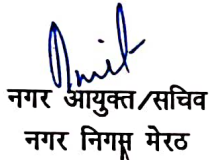 नगर आयुक्त/सचिव
नगर निगम मेरठ